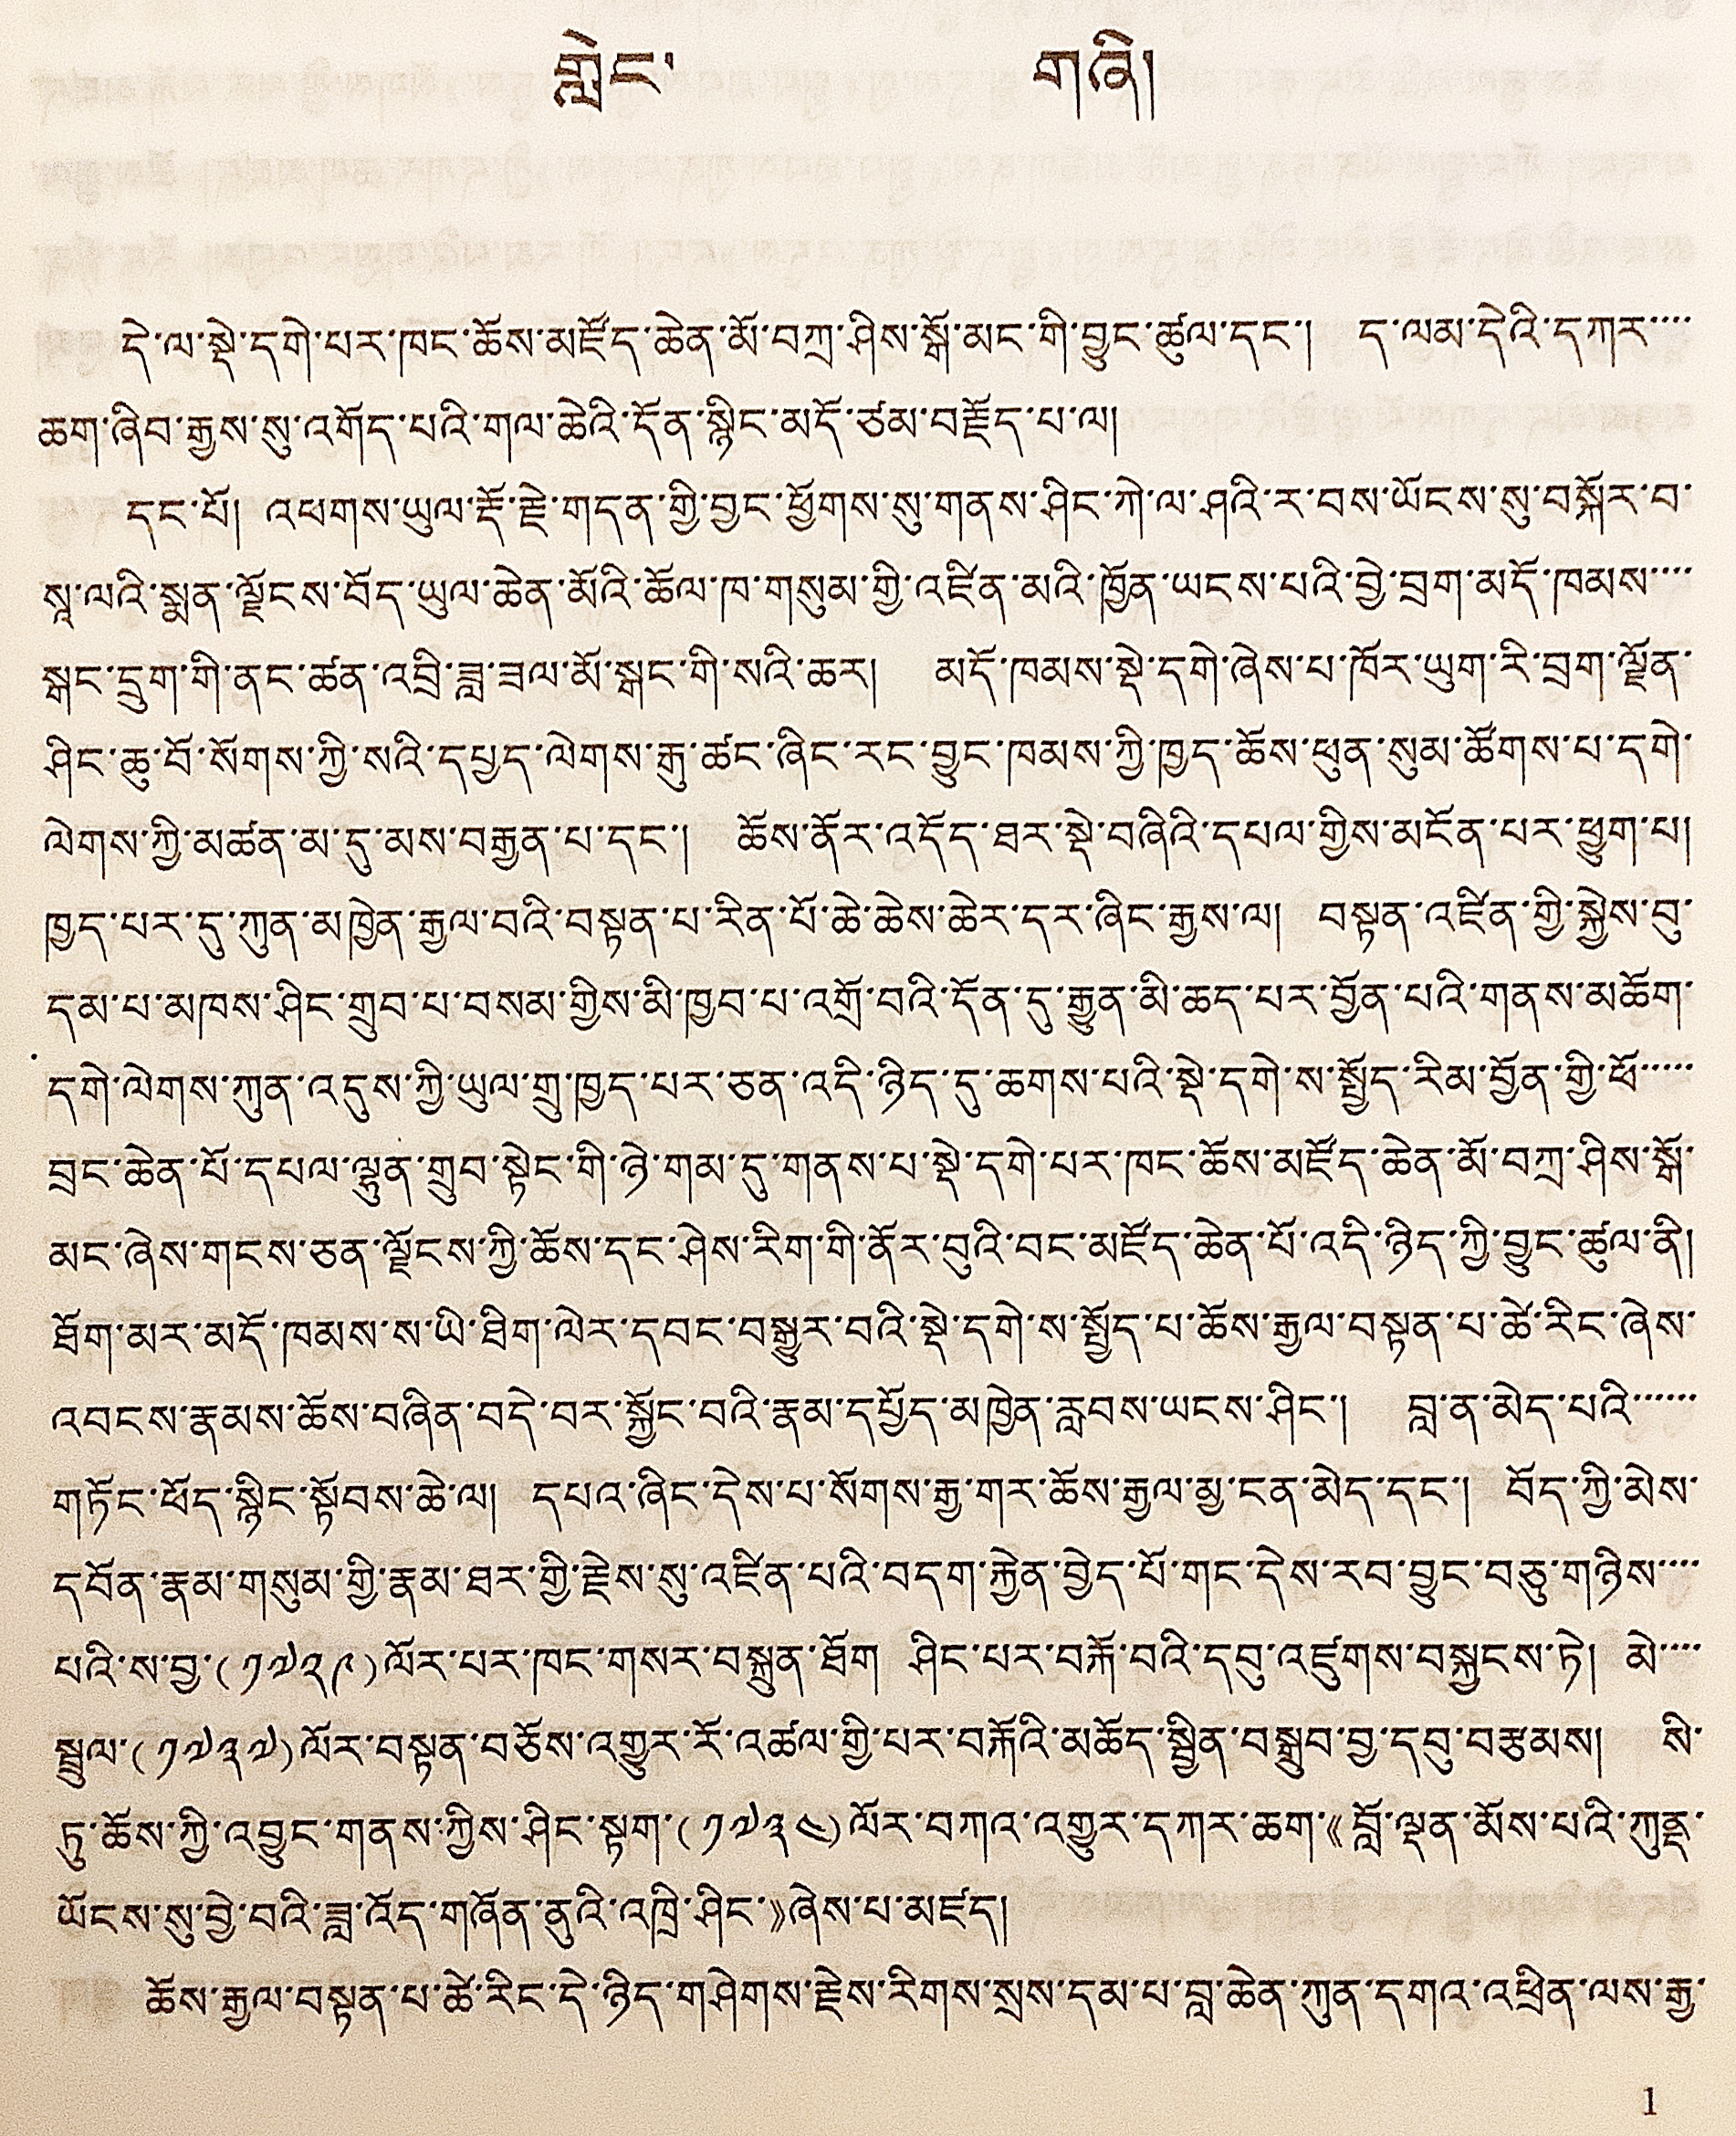 གླེང་ གཞི།
དེ་ལ་སྡེ་དགེ་པར་ཁང་ཆོས་མཛོད་ཆེན་མོ་བཀྲ་ཤིས་སྒོ་མང་གི་བྱུང་ཚུལ་དང་། ད་ལམ་དེའི་དཀར་་་་
ཆག་ཞིབ་རྒྱས་སུ་འགོད་པའི་གལ་ཆེའི་དོན་སྙིང་མདོ་ཙམ་བརྗོད་པ་ལ།
དང་པོ། འཕགས་ཡུལ་རྡོ་རྗེ་གདན་གྱི་བྱང་ཕྱོགས་སུ་གནས་ཤིང་ཀེ་ལ་ཤའི་ར་བས་ཡོངས་སུ་བསྐོར་བ་
སཱ་ལའི་སྨན་ལྗོངས་བོད་ཡུལ་ཆེན་མོའི་ཆོལ་ཁ་གསུམ་གྱི་འཛིན་མའི་ཁྱོན་ཡངས་པའི་བྱེ་བྲག་མདོ་ཁམས་་་་
སྒང་དྲུག་གི་ནང་ཚན་འབྲི་ཟླ་ཟལ་མོ་སྒང་གི་སའི་ཆར། མདོ་ཁམས་སྡེ་དགེ་ཞེས་པ་ཁོར་ཡུག་རི་བྲག་ལྗོན་
ཤིང་ཆུ་བོ་སོགས་ཀྱི་སའི་དཔྱད་ལེགས་རྒུ་ཚང་ཞིང་རང་བྱུང་ཁམས་ཀྱི་ཁྱད་ཆོས་ཕུན་སུམ་ཚོགས་པ་དགེ་
ལེགས་ཀྱི་མཚན་མ་དུ་མས་བརྒྱན་པ་དང་། ཆོས་ནོར་འདོད་ཐར་སྡེ་བཞིའི་དཔལ་གྱིས་མངོན་པར་ཕྱུག་པ།
ཁྱད་པར་དུ་ཀུན་མཁྱེན་རྒྱལ་བའི་བསྟན་པ་རིན་པོ་ཆེ་ཆེས་ཆེར་དར་ཞིང་རྒྱས་ལ། བསྟན་འཛིན་གྱི་སྐྱེས་བུ་
དམ་པ་མཁས་ཤིང་གྲུབ་པ་བསམ་གྱིས་མི་ཁྱབ་པ་འགྲོ་བའི་དོན་དུ་རྒྱུན་མི་ཆད་པར་བྱོན་པའི་གནས་མཆོག་
དགེ་ལེགས་ཀུན་འདུས་ཀྱི་ཡུལ་གྲུ་ཁྱད་པར་ཅན་འདི་ཉིད་དུ་ཆགས་པའི་སྡེ་དགེ་ས་སྤྱོད་རིམ་བྱོན་གྱི་ཕོ་་་་་
བྲང་ཆེན་པོ་དཔལ་ལྷུན་གྲུབ་སྟེང་གི་ཉེ་གམ་དུ་གནས་པ་སྡེ་དགེ་པར་ཁང་ཆོས་མཛོད་ཆེན་མོ་བཀྲ་ཤིས་སྒོ་
མང་ཞེས་གངས་ཅན་ལྗོངས་ཀྱི་ཆོས་དང་ཤེས་རིག་གི་ནོར་བུའི་བང་མཛོད་ཆེན་པོ་འདི་ཉིད་ཀྱི་བྱུང་ཚུལ་ནི།
ཐོག་མར་མདོ་ཁམས་ས་ཡི་ཐིག་ལེར་དབང་བསྒྱུར་བའི་སྡེ་དགེ་ས་སྤྱོད་པ་ཆོས་རྒྱལ་བསྟན་པ་ཚེ་རིང་ཞེས་
འབངས་རྣམས་ཆོས་བཞིན་བདེ་བར་སྐྱོང་བའི་རྣམ་དཔྱོད་མཁྱེན་རླབས་ཡངས་ཤིང་། བླ་ན་མེད་པའི་་་་་་
གཏོང་ཕོད་སྙིང་སྟོབས་ཆེ་ལ། དཔའ་ཞིང་དེས་པ་སོགས་རྒྱ་གར་ཆོས་རྒྱལ་མྱ་ངན་མེད་དང་། བོད་ཀྱི་མེས་
དབོན་རྣམ་གསུམ་གྱི་རྣམ་ཐར་གྱི་རྗེས་སུ་འཛིན་པའི་བདག་རྐྱེན་བྱེད་པོ་གང་དེས་རབ་བྱུང་བཅུ་གཉིས་་་་
པའི་ས་བྱ་(༡༧༢༩)ལོར་པར་ཁང་གསར་བསྐྲུན་ཐོག ཤིང་པར་བརྐོ་བའི་དབུ་འཛུགས་བསྐྱངས་ཏེ། མེ་་་་
སྦྲུལ་(༡༧༣༧)ལོར་བསྟན་བཅོས་འགྱུར་རོ་འཚལ་གྱི་པར་བརྐོའི་མཆོད་སྦྱིན་བསྒྲུབ་བྱ་དབུ་བརྩམས། སི་
ཏུ་ཆོས་ཀྱི་འབྱུང་གནས་ཀྱིས་ཤིང་སྟག་(༡༧༣༤)ལོར་བཀའ་འགྱུར་དཀར་ཆག་《བློ་ལྡན་མོས་པའི་ཀུནྡ་
ཡོངས་སུ་བྱེ་བའི་ཟླ་འོད་གཞོན་ནུའི་འཁྲི་ཤིང་》ཞེས་པ་མཛད།
ཆོས་རྒྱལ་བསྟན་པ་ཚེ་རིང་དེ་ཉིད་གཤེགས་རྗེས་རིགས་སྲས་དམ་པ་བླ་ཆེན་ཀུན་དགའ་འཕྲིན་ལས་རྒྱ་
1